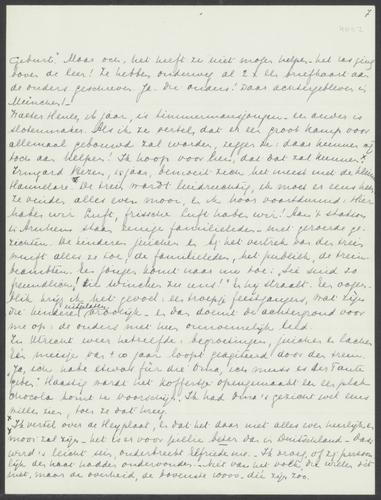 7
Geburt." Maar och, het heeft ze niet mogen helpen - het ras ging
boven de leer! Ze hebben onderweg al 2 x een briefkaart aan
de ouders geschreven. Ja, die ouders! Daar achtergebleven in
München! -
is timmermansjongen - en de ander is
slotenmaker. Als ik ze vertel, dat er een groot kamp voor
allemaal gebouwd zal worden, zeggen ze: daar kunnen wij
toch aan helpen! Ik hoop voor hen, dat dat zal kunnen.
Irmgard jaar, bemoeit zich het meest met de kleine
Hannelore. De trein wordt luidruchtig, ik moet er eens heen,
ze vinden alles even mooi, en ik hoor voortdurend: Hier
haben wir Luft, frische Luft haben wir! Aan 't station
in Arnhem staan eenige familieleden - met geroerde ge-
zichten. De kinderen juichen en bij het vertrek van den trein
wuift alles ze toe, de familieleden, het publiek, de trein-
beambten. Een jongen komt naar me toe: Sie sind so
freundlich! Sie winken uns! En hij straalt. Een oogen-
blik krijg ik het gevoel: een troepje feestgangers, wat zijn
die kinderen vroolijk - en dan doemt de achtergrond voor
me op: de ouders met hun onnoemelijk leed.
In Utrecht weer hetzelfde: begroetingen, juichen en lachen.
Een meisje van 10 jaar loopt geagiteerd door den trein.
Ja, ich habe etwas für die Oma, ich muss es der Tante
geben. Haastig wordt het koffertje opengemaakt en een plak
chocola komt te voorschijn. Ik had Oma's gezicht wel eens
willen zien, toen ze dat kreeg.
Ik vertel over de Heyplaat, en dat het daar niet alles even heerlijk en
mooi zal zijn - het is er voor jullie beter dan in Duitschland. - Daar
werd ik leicht sein, onderbreekt Elfriede me. Ik vroeg, of zij persoon-
lijk den haat hadden ondervonden. - Niet van het volk, die willen dit
niet, maar de overheid, de bovenste 10000, die zijn zoo.